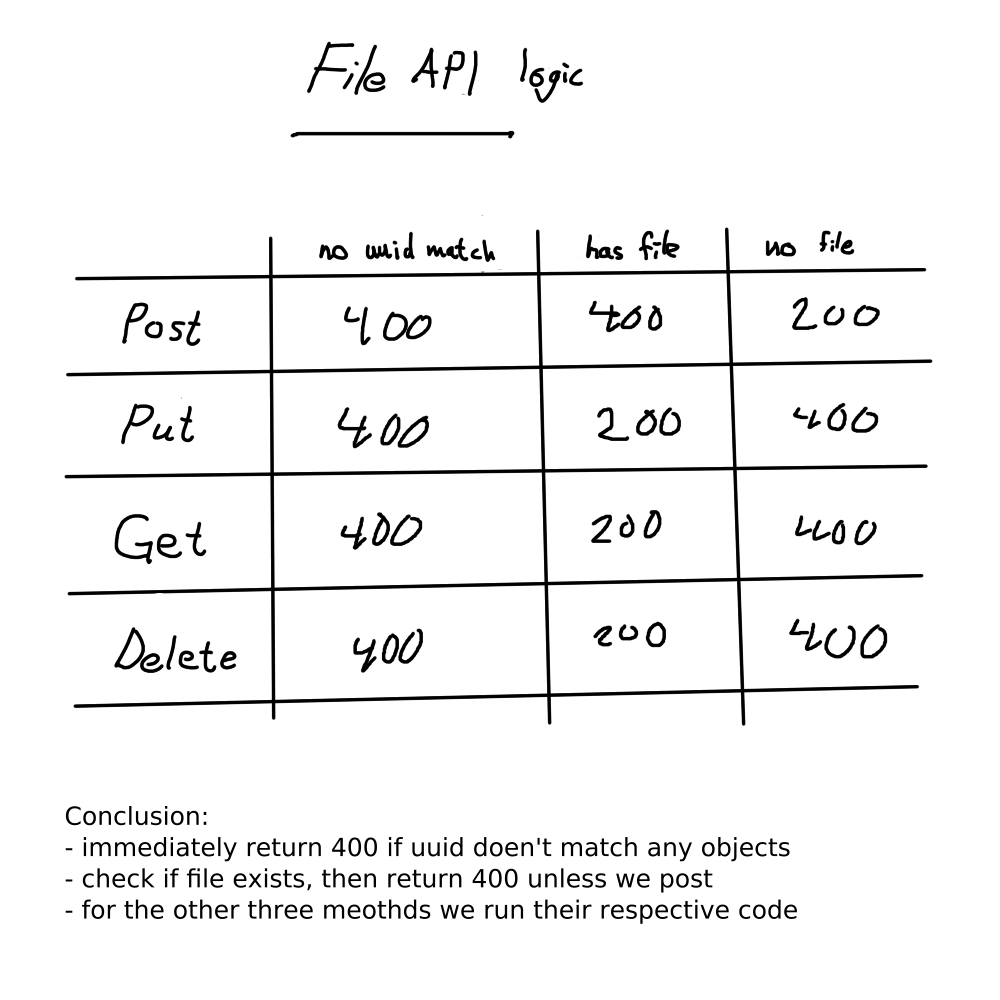 File API logic
no uuid match has file no file
Post 400 400 200
Put 400 200 400
Get 400 200 400
Delete 400 200 400
Conclusion:
- immediately return 400 if uuid doen't match any objects
- check if file exists, then return 400 unless we post
- for the other three meothds we run their respective code